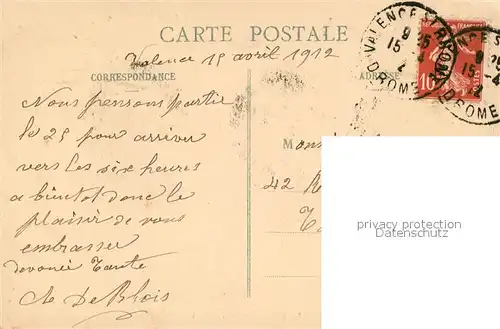 CARTE POSTALE
Valence 15 avril 1912
CORRESPONDANCE
ADRESSE
VALENCE S RH
9 25
15 - 4
12
DROME
10
Nous pensons partir
le 25 pour arriver
vers les six heures
a bientot donc le
plaisir de vous
embrasser
devouée Tante
de Blois
Mons
42
privacy protection
Datenschutz